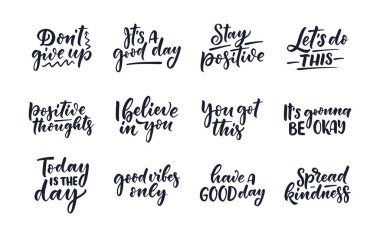 Don't
give up
It's A
good day
Stay
positive
Let's do
THIS
positive
thoughts
I believe
in you
You got
this
It's gonna
BE OKAY
Today
IS THE
day
good vibes
only
have A
GOOD day
Spread
kindness